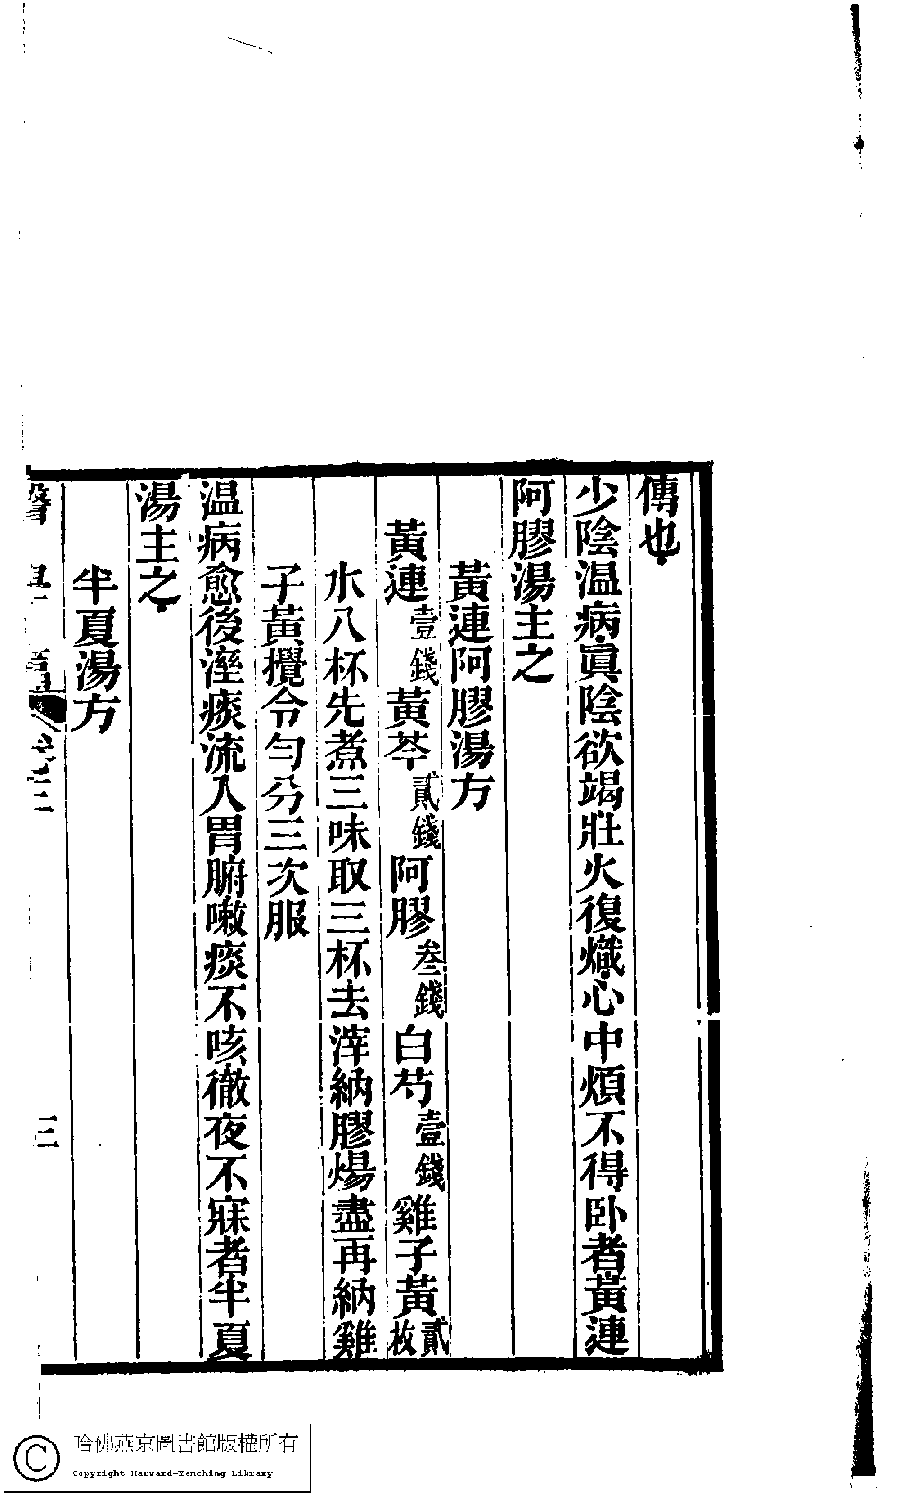 傳也
少陰温病眞陰欲竭壯火復熾心中煩不得卧者黃連
阿膠湯主之
黃連阿膠湯方
黃連壹錢黃芩貳錢阿膠叁錢白芍壹錢雞子黃貳枚
水八杯先煮三味取三杯去滓納膠煬盡再納雞
子黃攪令勻分三次服
温病愈後溼痰流入胃腑嗽痰不咳徹夜不寐者半夏
湯主之
半夏湯方
卷三
三
哈佛燕京圖書館版權所有
Copyright Harvard-Yenching Library